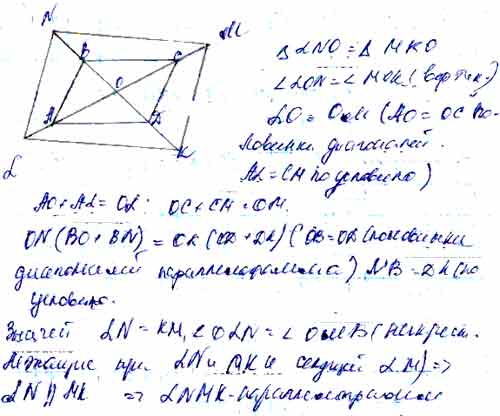 N
M
B
C
O
A
D
K
L
Δ LNO = Δ MKO
∠LON = ∠MOK (вертик.)
LO = OM (AO = OC по-
ловинки диагоналей.
AL = CM по условию)
AO + AL = OL; OC + CM = OM.
ON (BO + BN) = OK (OD + DK) (OB = OD (половинки
диагоналей параллелограмма) NB = DK (по
условию.
Значит LN = KM, ∠OLN = ∠OMB (накрест.
лежащие при LN и MK и секущей LM) =>
LN || MK => LNMK - параллелограмм